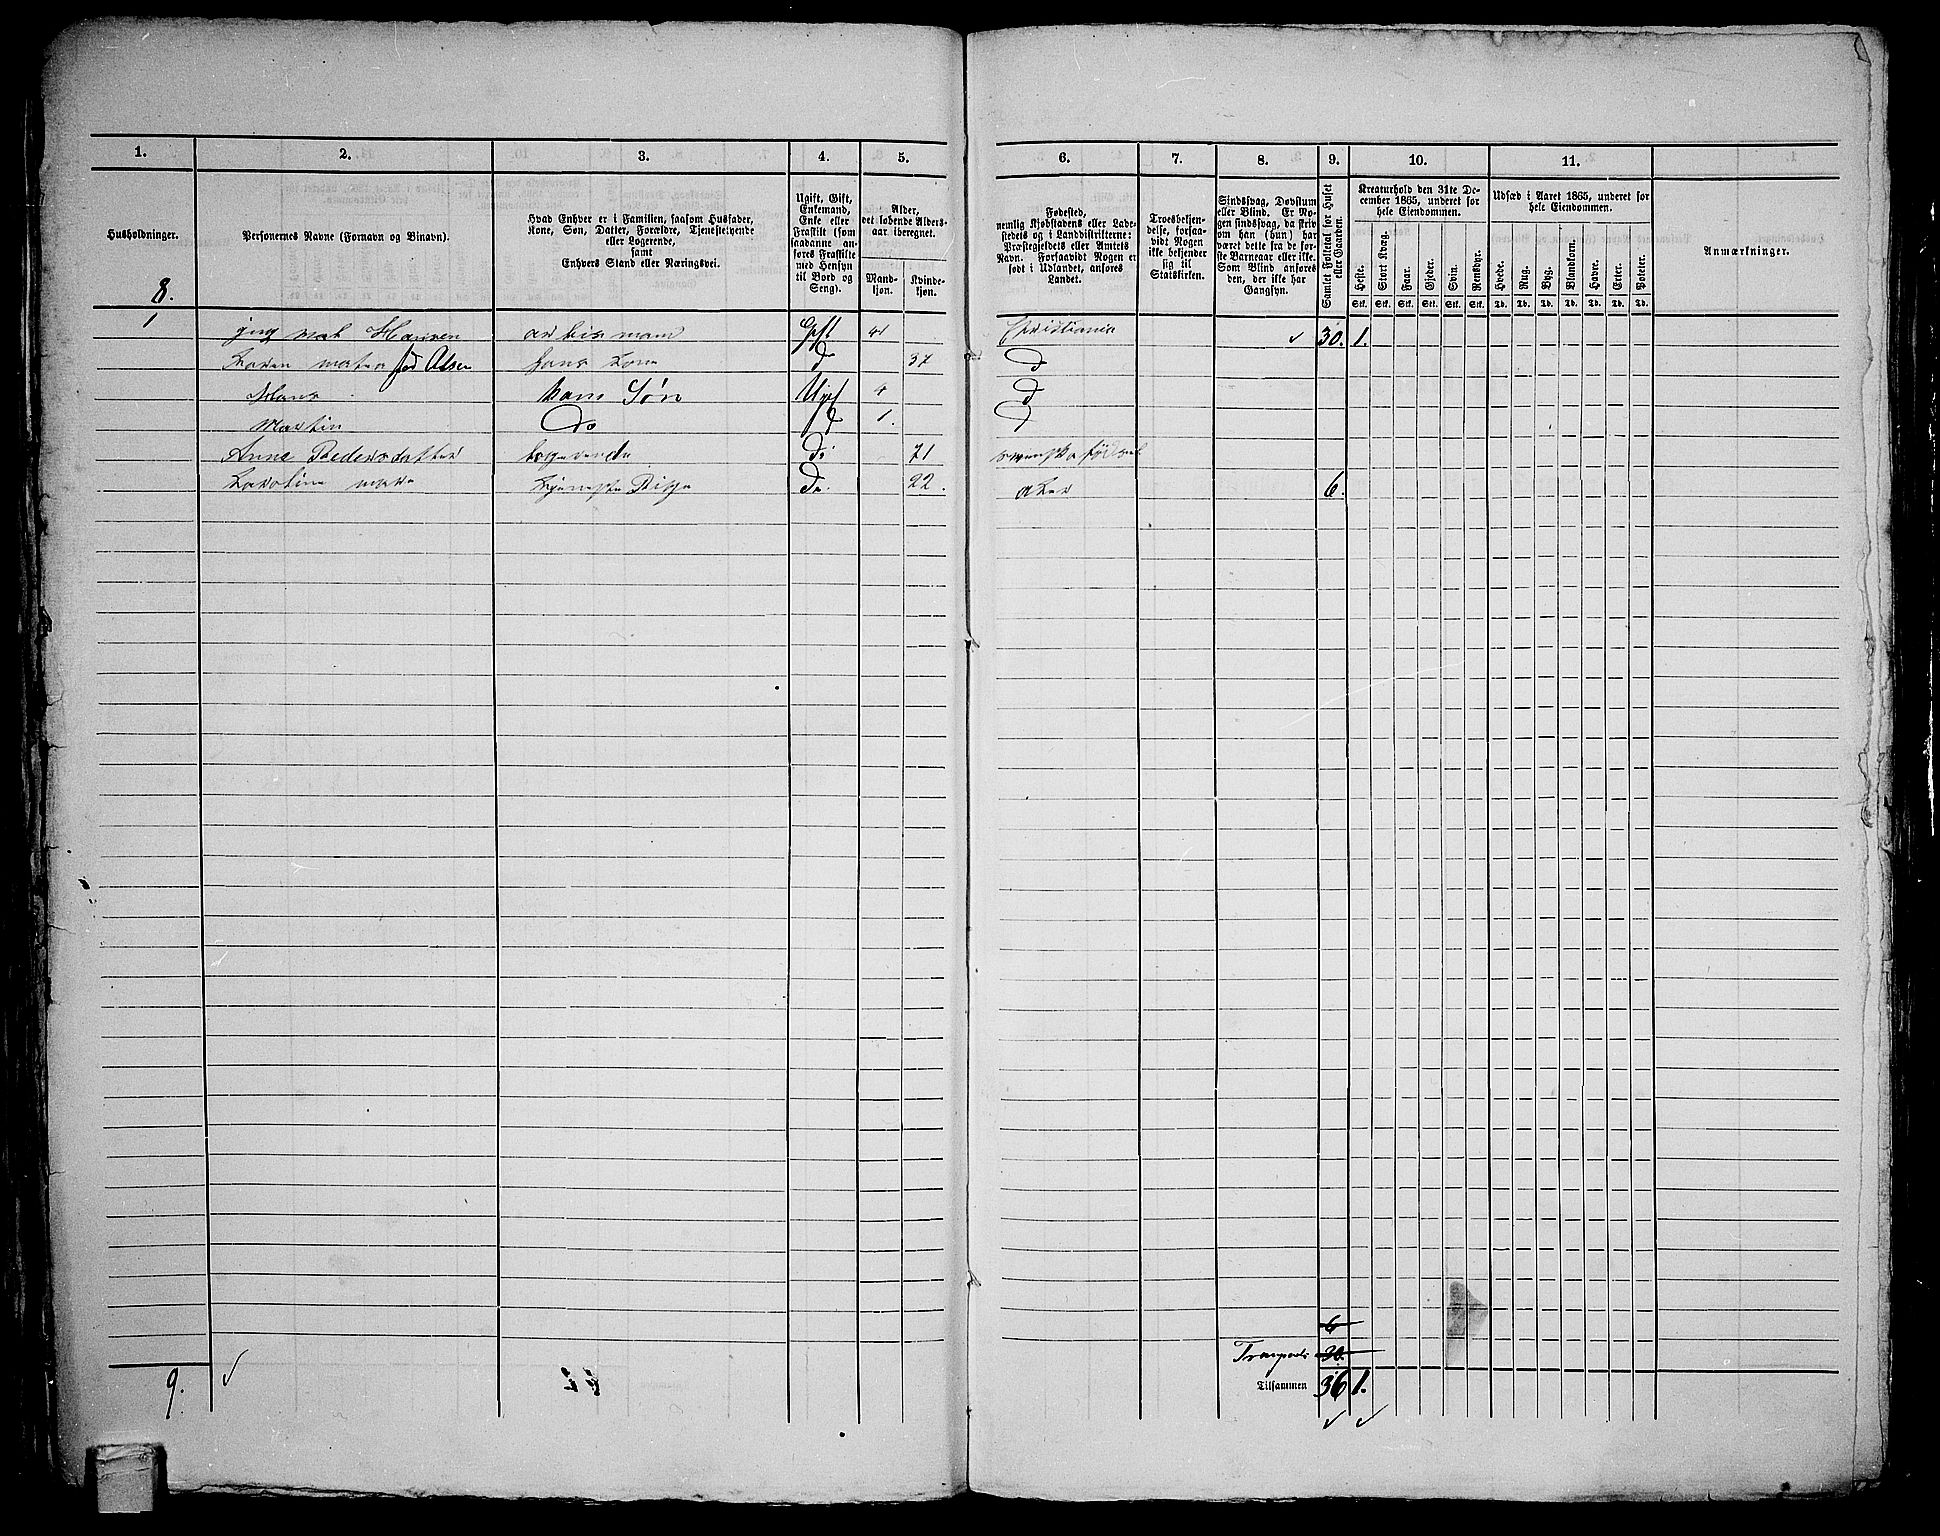 1. 2. 3. 4. 5. 6. 7. 8. 9. 10. 11.
Husholdninger.
Personernes Navne (Fornavn og Binavn).
Hvad Enhver er i Familien, saasom Husfader,
Kone, Søn, Datter, Forældre, Tjenestetyende
eller Logerende,
samt
Enhvers Stand eller Næringsvei.
Ugift, Gift,
Enkemand,
Enke eller
Fraskilt (som
saadanne an-
føres Fraskilte
med Hensyn
til Bord og
Seng).
Alder,
det løbende Alders-
aar iberegnet.
Mand-
kjøn.
Kvinde-
kjøn.
Fødested,
nemlig Kjøbstadens eller Lade-
stedets og i Landdistrikterne:
Præstegjeldets eller Amtets
Navn. Forsaavidt Nogen er
født i Udlandet, anføres
Landet.
Troesbekjen-
delse, forsaa-
vidt Nogen
ikke bekjender
sig til
Statskirken.
Sindssvag, Døvstum
eller Blind. Er No-
gen sindssvag, da skriv
om han (hun) har
været dette fra de før-
ste Barneaar eller ikke.
Som Blind anføres
den, der ikke har
Gangsyn.
Samlet Folketal for Huset
eller Gaarden.
Kreaturhold den 31te De-
cember 1865, underet for
hele Eiendommen.
Heste. Stort Kvæg. Faar. Gjeder. Svin. Rensdyr.
Stk. Stk. Stk. Stk. Stk. Stk.
Udsæd i Aaret 1865, underet for
hele Eiendommen.
Hvede. Rug. Byg. Blandkorn. Havre. Erter. Poteter.
Td. Td. Td. Td. Td. Td. Td.
Anmærkninger.
8.
1 Hansen Gift 41 Christiania ✓ 30. 1.
mathea Olsen hans Kone d 37 d
Hans hans Søn Ugift 4 d
Martin Do d 1. d
Anne Pedersdatter logerende do 71
Karoline Pige Do. 22. aker 6.
6
Transport 30.
Tilsammen 36 1.
9. ✓
✓ ✓